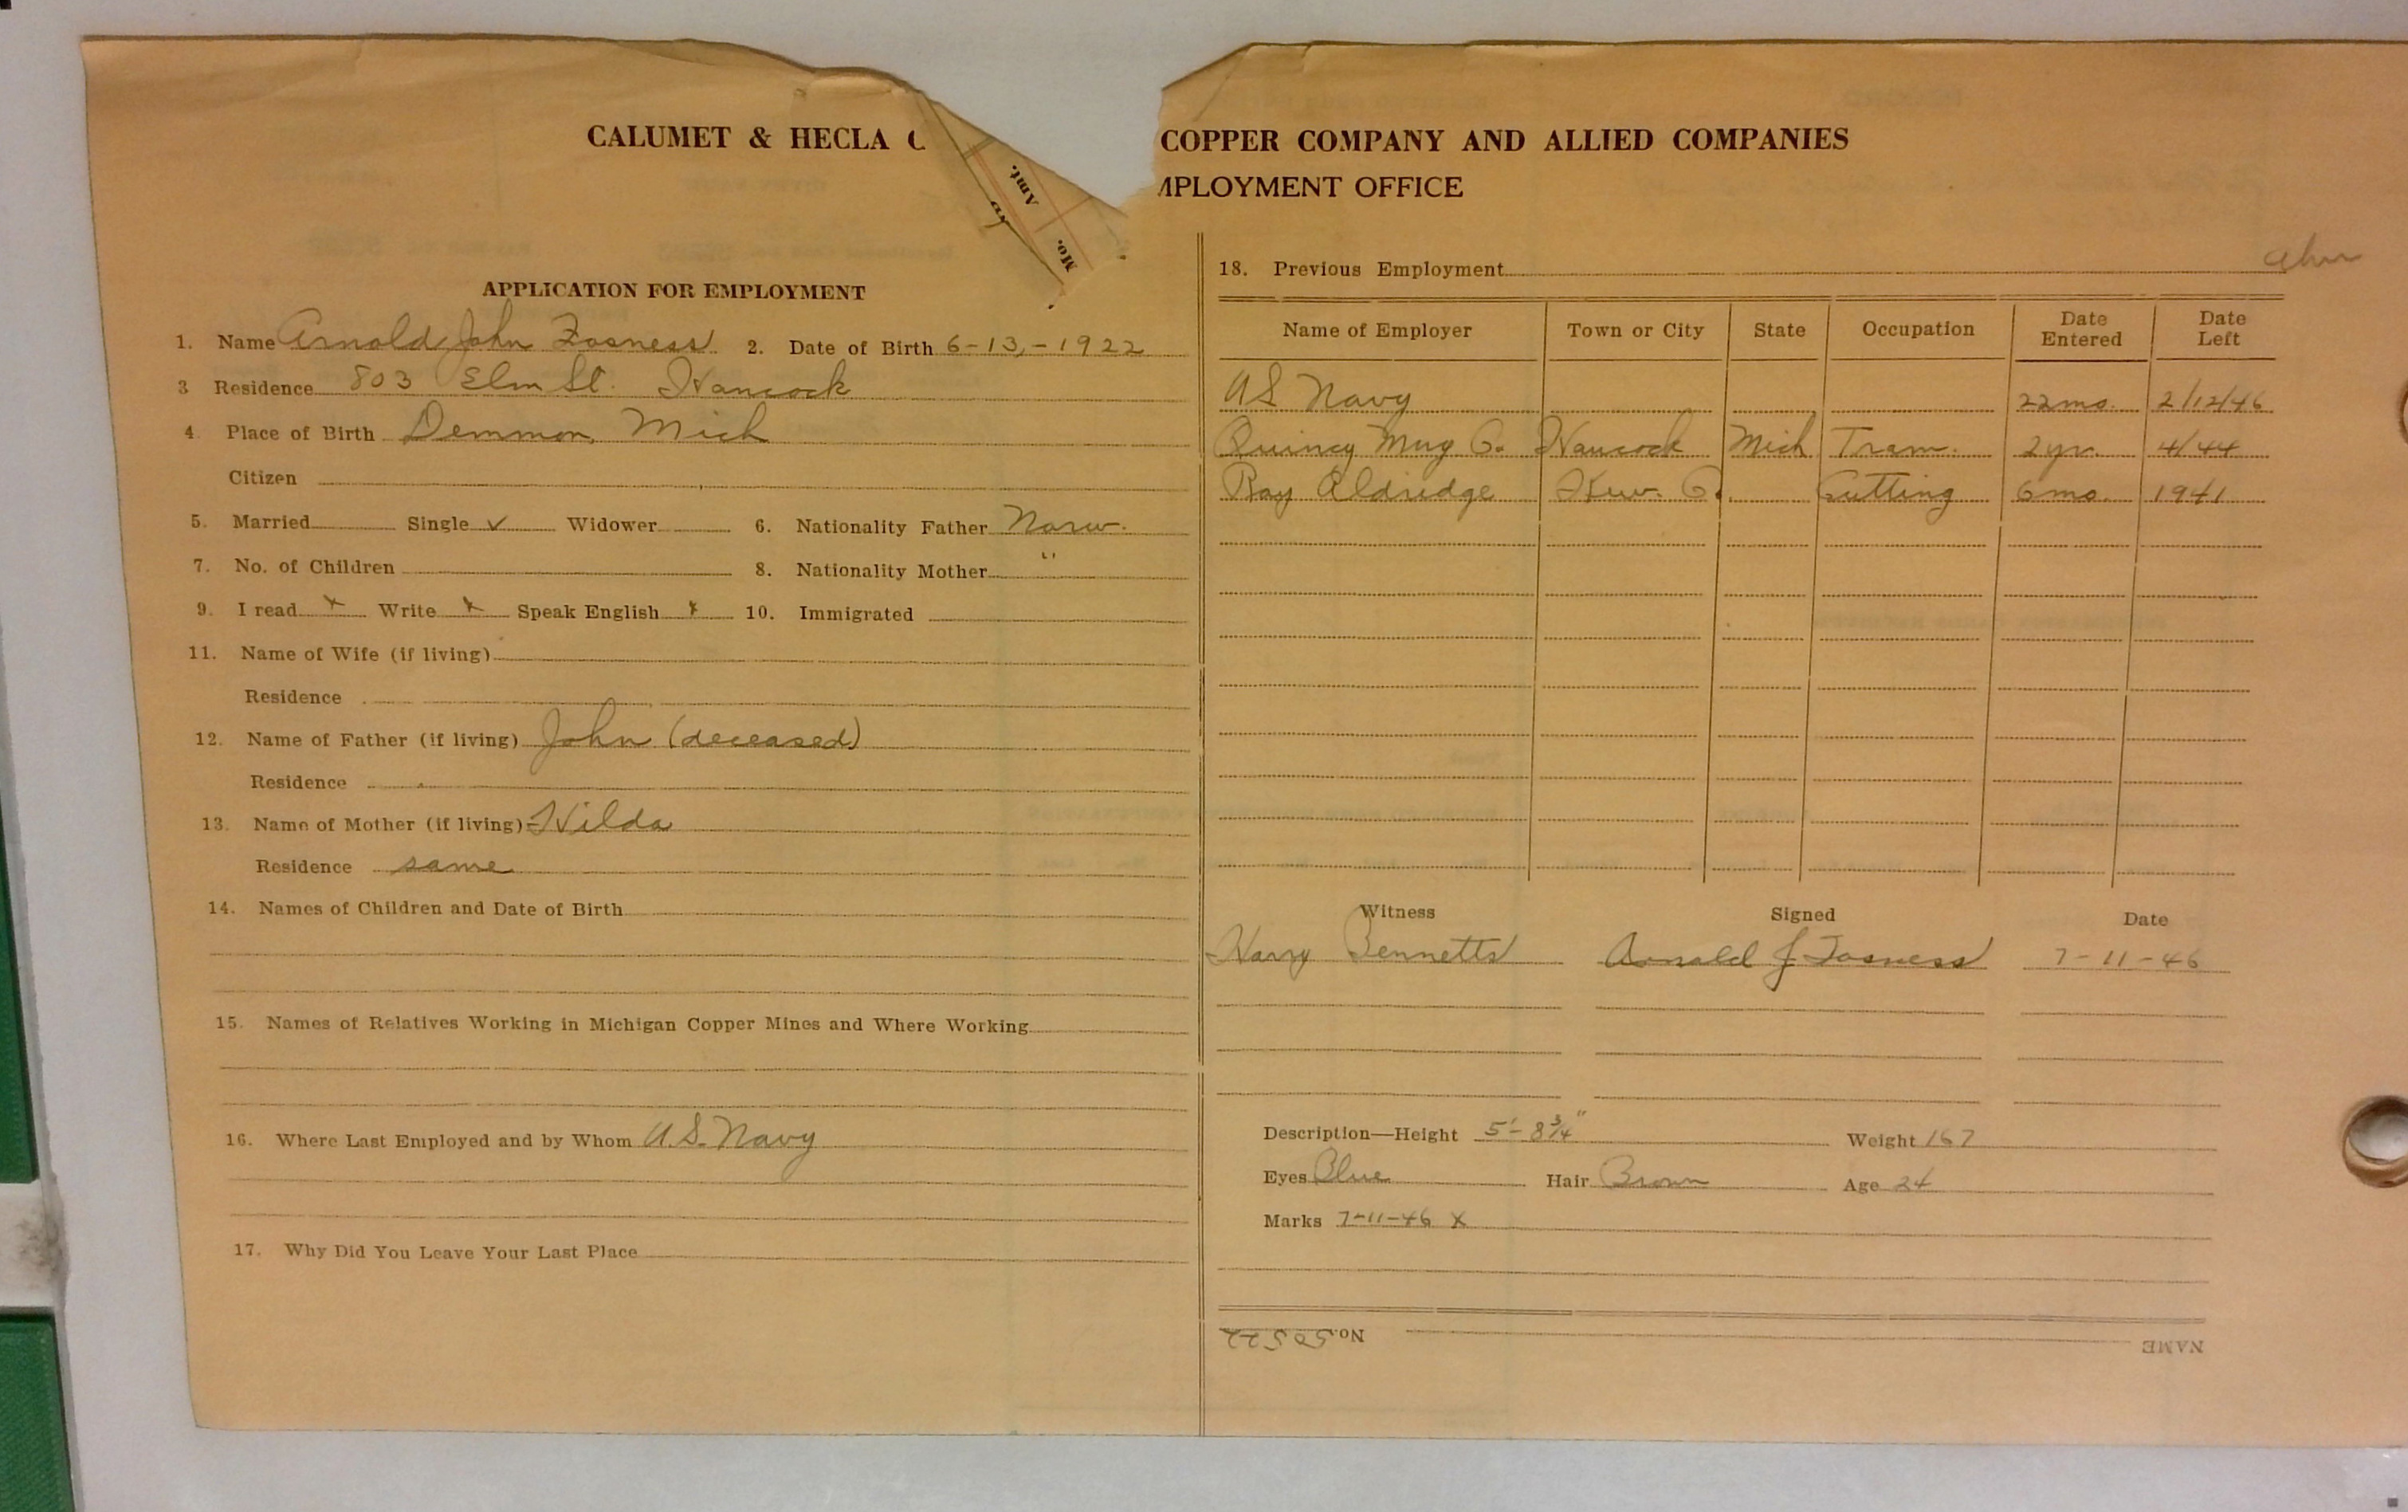 CALUMET & HECLA C COPPER COMPANY AND ALLIED COMPANIES
MPLOYMENT OFFICE
Amt.
Mo.
APPLICATION FOR EMPLOYMENT
1. Name Arnold John Fosness 2. Date of Birth 6-13,-1922
3 Residence 803 Elm St. Hancock
4. Place of Birth Demmon, Mich
Citizen
5. Married Single ✓ Widower 6. Nationality Father Norw.
7. No. of Children 8. Nationality Mother "
9. I read x Write x Speak English x 10. Immigrated
11. Name of Wife (if living)
Residence
12. Name of Father (if living) John (deceased)
Residence
13. Name of Mother (if living) Hilda
Residence same
14. Names of Children and Date of Birth
15. Names of Relatives Working in Michigan Copper Mines and Where Working
16. Where Last Employed and by Whom U.S. Navy
17. Why Did You Leave Your Last Place
18. Previous Employment
Name of Employer Town or City State Occupation Date Entered Date Left
US Navy 22 mo. 2/12/46
Quincy Mng Co. Hancock Mich Tram. 2 yr. 4/44
Ray Aldridge Kew. Co. Cutting 6 mo. 1941
Witness Signed Date
Harry Bennetts Arnold J Fosness 7-11-46
Description—Height 5'-8 3/4" Weight 167
Eyes Blue Hair Brown Age 24
Marks 7-11-46 X
NAME No. 50522